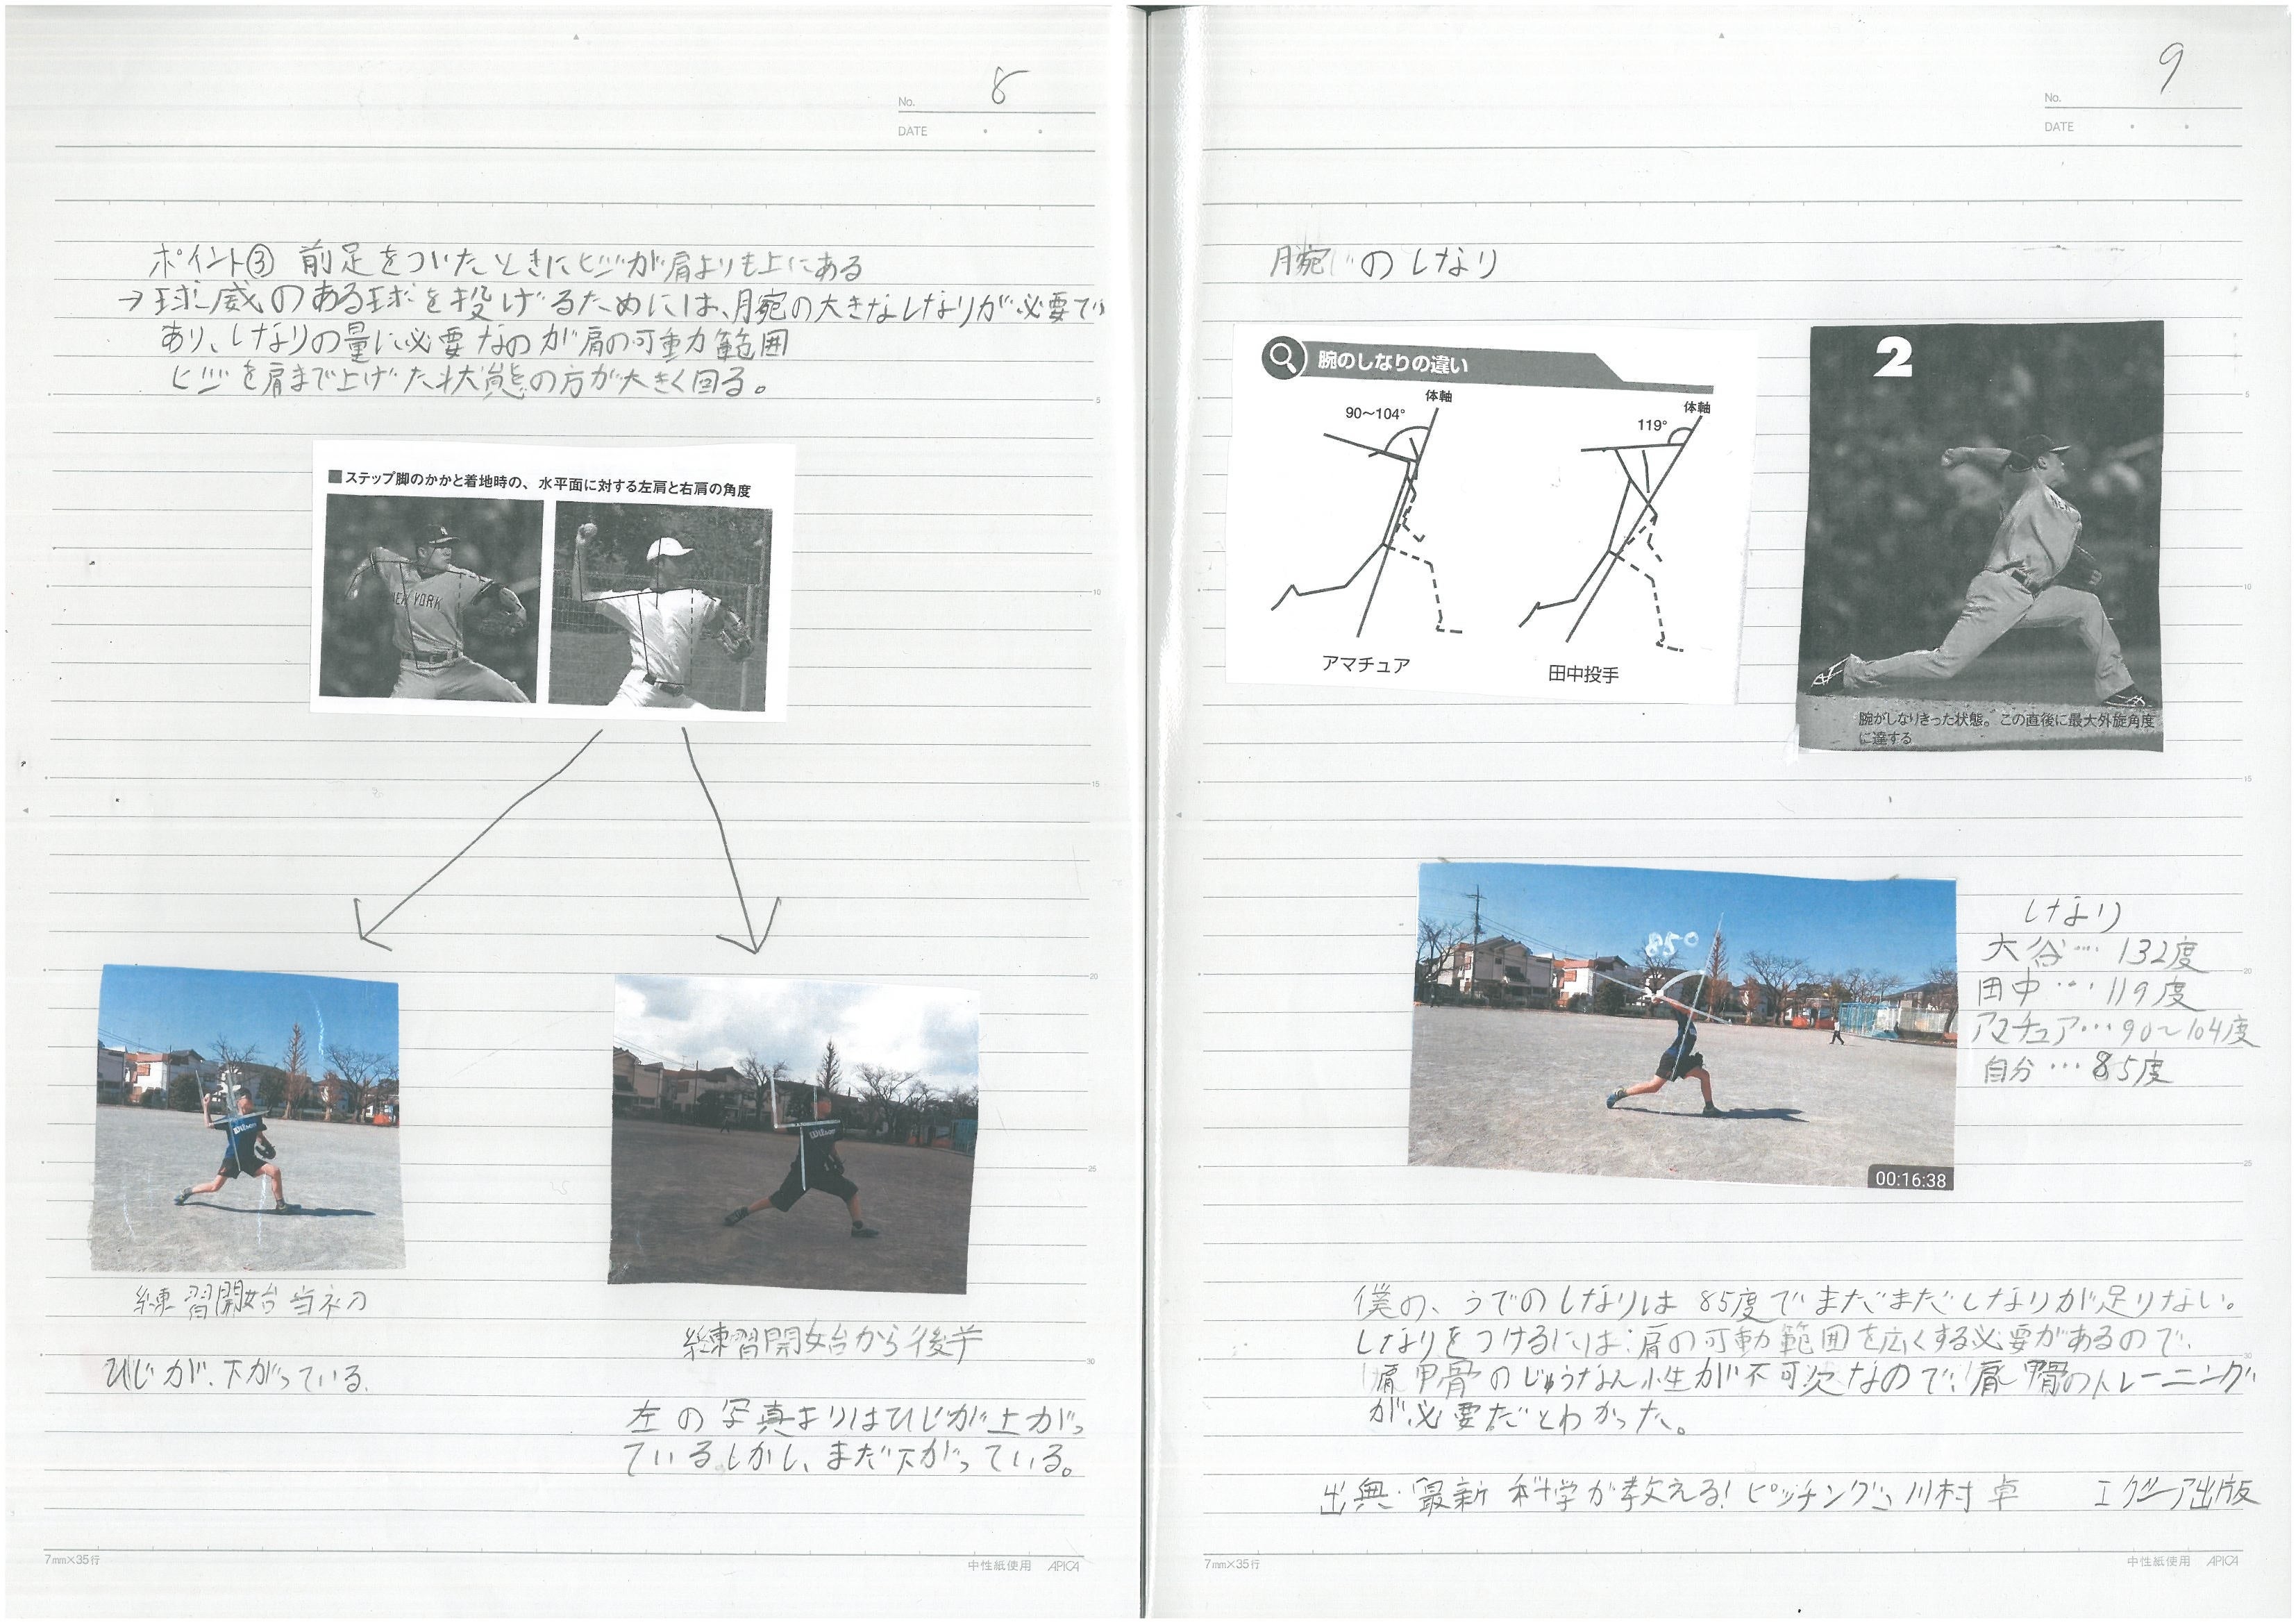 No. 8
DATE
ポイント③ 前足をついたときにヒジが肩よりも上にある
→球威のある球を投げるためには、腕の大きなしなりが必要で
あり、しなりの量に必要なのが肩の可動範囲
ヒジを肩まで上げた状態の方が大きく回る。
■ステップ脚のかかと着地時の、水平面に対する左肩と右肩の角度
NEW YORK
Wilson
Wilson
練習開始当初
ひじが、下がっている。
練習開始から後半
左の写真よりはひじが上がっ
ているしかし、まだ下がっている。
5
10
15
20
25
30
7mm×35行
中性紙使用 APICA
No. 9
DATE
腕のしなり
腕のしなりの違い
90〜104°
体軸
119°
体軸
アマチュア
田中投手
2
腕がしなりきった状態。この直後に最大外旋角度
に達する
85°
00:16:38
しなり
大谷…132度
田中…119度
アマチュア…90〜104度
自分…85度
僕の、うでのしなりは85度でまだまだしなりが足りない。
しなりをつけるには、肩の可動範囲を広くする必要があるので、
肩甲骨のじゅうなん性が不可欠なので、肩甲骨のトレーニング
が必要だとわかった。
出典:「最新 科学が教える!ピッチング」川村 卓 エクシア出版
5
10
15
20
25
30
7mm×35行
中性紙使用 APICA